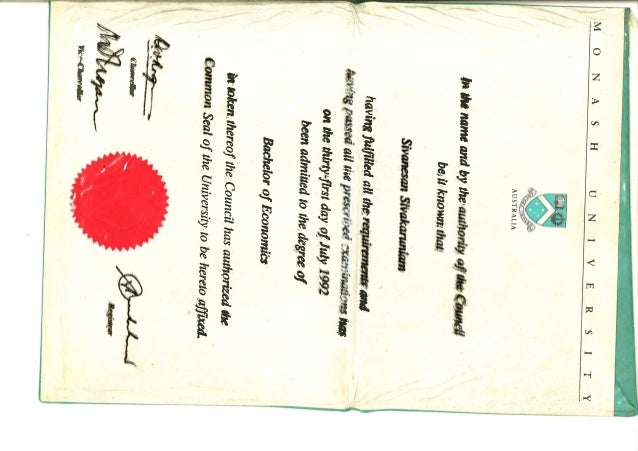 MONASH UNIVERSITY
AUSTRALIA
In the name and by the authority of the Council
be it known that
Sivanesan Sivakaruniam
having fulfilled all the requirements and
having passed all the prescribed examinations has
on the thirty-first day of July 1992
been admitted to the degree of
Bachelor of Economics
in token thereof the Council has authorized the
Common Seal of the University to be hereto affixed.
Chancellor
Vice-Chancellor
Registrar